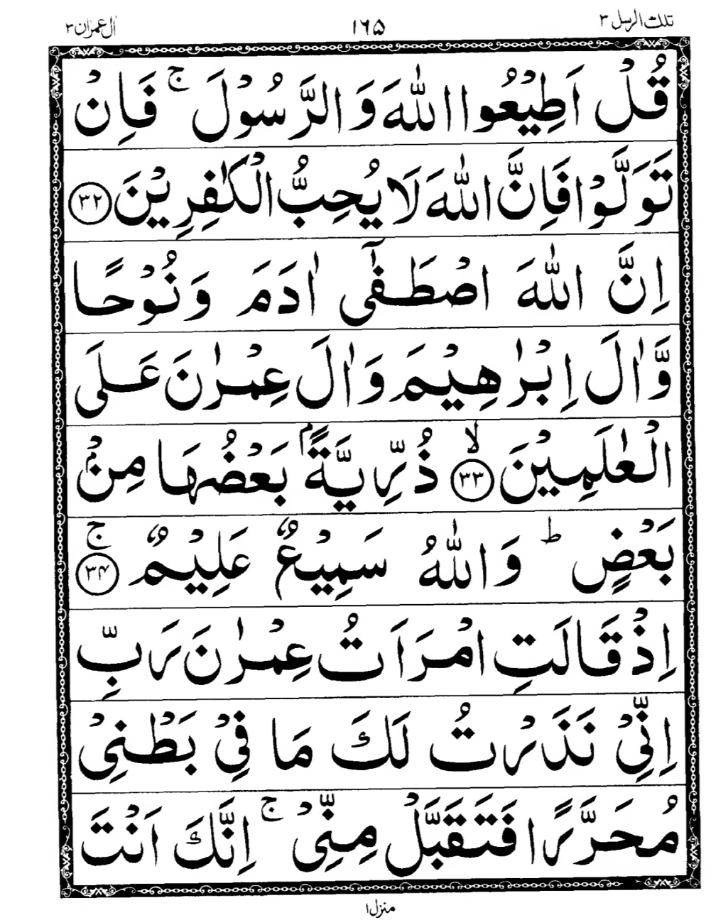 تلك الرسل ٣ ١٦۵ اٰل عمرٰن ٣
قُلْ اَطِيْعُوا اللّٰهَ وَ الرَّسُوْلَ ۚ فَاِنْ
تَوَلَّوْا فَاِنَّ اللّٰهَ لَا يُحِبُّ الْكٰفِرِيْنَ ﴿٣٢﴾
اِنَّ اللّٰهَ اصْطَفٰۤى اٰدَمَ وَ نُوْحًا
وَّ اٰلَ اِبْرٰهِيْمَ وَ اٰلَ عِمْرٰنَ عَلَى
الْعٰلَمِيْنَ ۙ﴿٣٣﴾ ذُرِّيَّةًۢ بَعْضُهَا مِنْۢ
بَعْضٍ ؕ وَ اللّٰهُ سَمِيْعٌ عَلِيْمٌ ۚ﴿٣۴﴾
اِذْ قَالَتِ امْرَاَتُ عِمْرٰنَ رَبِّ
اِنِّيْ نَذَرْتُ لَكَ مَا فِيْ بَطْنِيْ
مُحَرَّرًا فَتَقَبَّلْ مِنِّيْ ۚ اِنَّكَ اَنْتَ
منزل ١